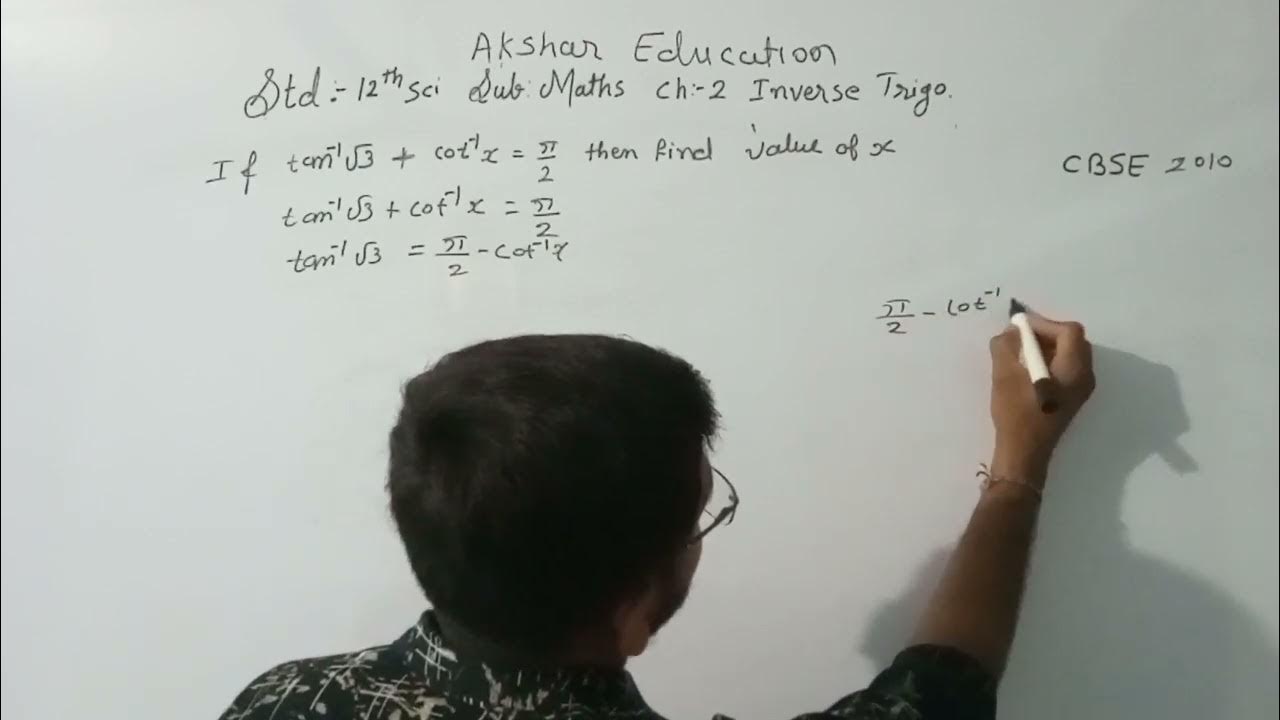 Akshar Education
Std:- 12th sci Sub: Maths ch:-2 Inverse Trigo.
If tan⁻¹√3 + cot⁻¹x = π/2 then find value of x
CBSE 2010
tan⁻¹√3 + cot⁻¹x = π/2
tan⁻¹√3 = π/2 - cot⁻¹x
π/2 - cot⁻¹